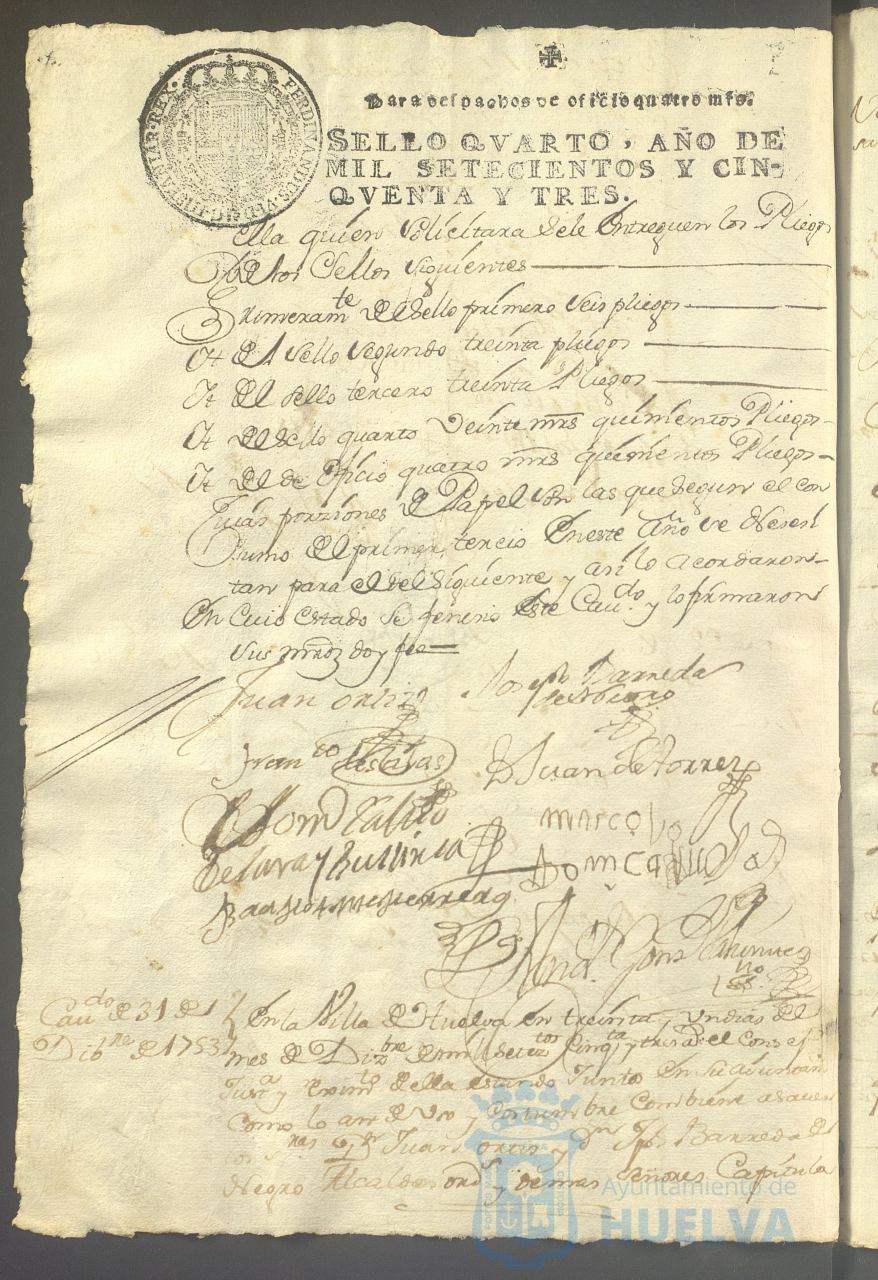 FERDINANDUS·VI·D·G·HISPANIAR·REX·
Para despachos de oficio quatro mrs.
SELLO QVARTO, AÑO DE
MIL SETECIENTOS Y CIN-
QVENTA Y TRES.
ella quien solicitara sele entreguen los Pliegos
de los sellos siguientes
Primeramte del sello primero seis pliegos
Yt del sello segundo treinta pliegos
Yt del sello tercero treinta Pliegos
Yt del sello quarto veinte mrs quinientos Pliegos
Yt del de oficio quatro mrs quinientos Pliegos
Cuias porziones de Papel son las que segun el con
sumo del primer tercio en este Año se nesesi
tan para el del siguiente y asi lo acordaron
en cuio estado se fenecio este Cavdo. y lo firmaron
sus mrds doy fee
Juan ortiz Joseph Barreda
Franco D Juan de torres
marcos
Cavdo de 31 de
Dizbre de 1753
En la Villa de Huelva en treinta y un dias del
mes de Dizbre de mill setezos cinqta y tres el Consejo
Justa y Reximto de ella estando Junto en su aiuntam
como lo an de uso y costumbre combiene a saver
los Sres Juan ortiz y Dn Jph Barreda
Negro Alcaldes ords y demas señores Capitula
Ayuntamiento de
HUELVA